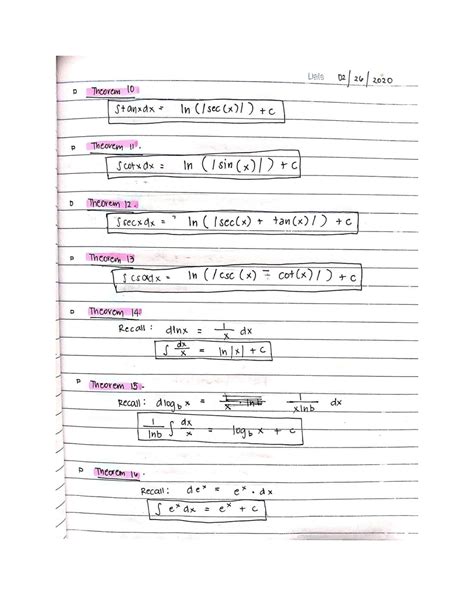 Date 02/26/2020
Theorem 10
∫tanxdx = ln(|sec(x)|) + c
Theorem 11.
∫cotxdx = ln (|sin(x)|) + c
Theorem 12.
∫secxdx = ln (|sec(x) + tan(x)|) + c
Theorem 13
∫cscxdx = ln (|csc(x) - cot(x)|) + c
Theorem 14.
Recall: dlnx = 1/x dx
∫ dx/x = ln|x| + c
Theorem 15.
Recall: dlog_b x = 1/xlnb dx
1/lnb ∫ dx/x = log_b x + c
Theorem 16.
Recall: de^x = e^x . dx
∫ e^x dx = e^x + c